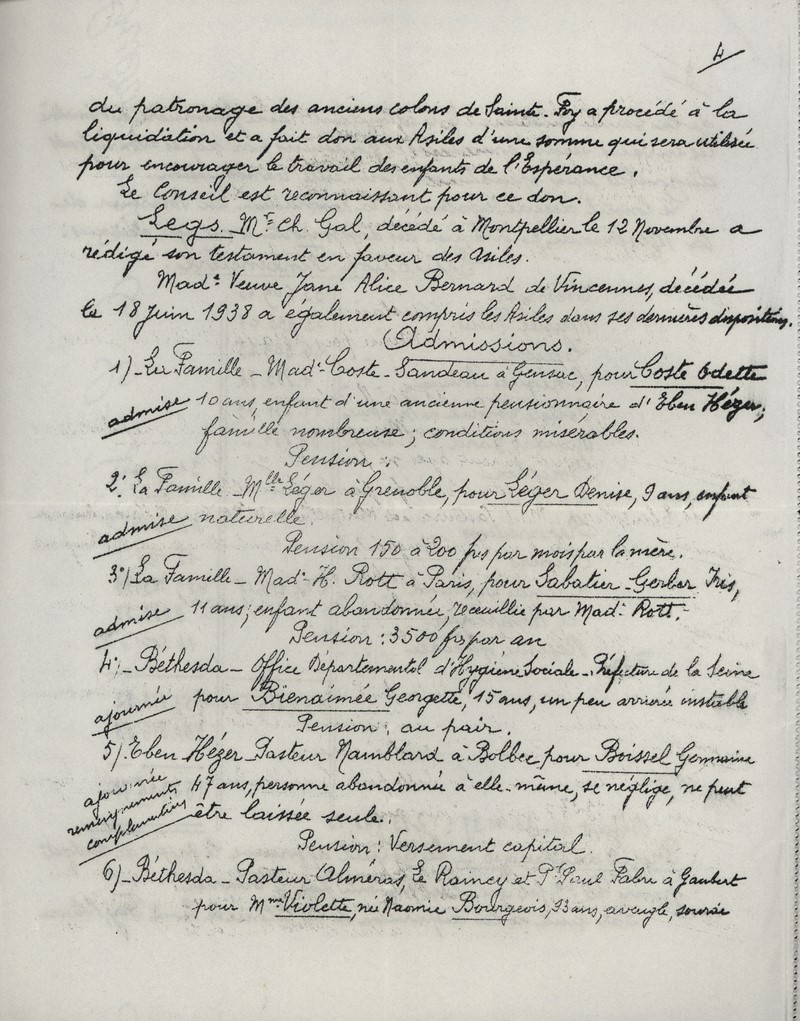 4
du patronage des anciens colons de Sainte-Foy a procédé à la
liquidation et a fait don aux Asiles d'une somme qui sera utilisée
pour encourager le travail des enfants de l'Espérance.
Le Conseil est reconnaissant pour ce don.
Legs. Mr Ch. Gal, décédé à Montpellier le 12 Novembre a
rédigé son testament en faveur des Asiles.
Made Veuve Jane Alice Bernard de Vincennes, décédée
le 18 Juin 1938 a également compris les Asiles dans ses dernières dispositions.
Admissions.
1)- La Famille - Made Coste-Sandeau à Gensac, pour Coste Odette
admise 10 ans, enfant d'une ancienne pensionnaire d'Eben Hézer;
famille nombreuse; conditions misérables.
Pension:
2°. La Famille - Mlle Léger à Grenoble, pour Léger Denise, 9 ans, enfant
admise naturelle.
Pension 150 à 200 frs par mois par la mère.
3°/ La Famille - Made H. Rott à Paris, pour Sabatier-Gerber Iris,
admise 11 ans; enfant abandonnée, receuillie par Made Rott.-
Pension: 3500 frs par an
4°/- Béthesda - Office Départemental d'Hygiène Sociale - Préfecture de la Seine
ajournée pour Bienaimée Georgette, 15 ans, un peu arriérée instable
Pension: au pair.
5/. Eben Hézer - Pasteur Namblard à Bolbec pour Boissel Germaine
ajournée 47 ans, personne abandonnée à elle-même, se néglige, ne peut
renseignements
complémentaires être laissée seule.
Pension: Versement capital.
6)- Béthesda - Pasteur Alméras, Le Raincy et Pr Paul Fabre à Gaubert
pour Mme Violette, née Naomie Bourgeois, 33 ans, aveugle, sourde